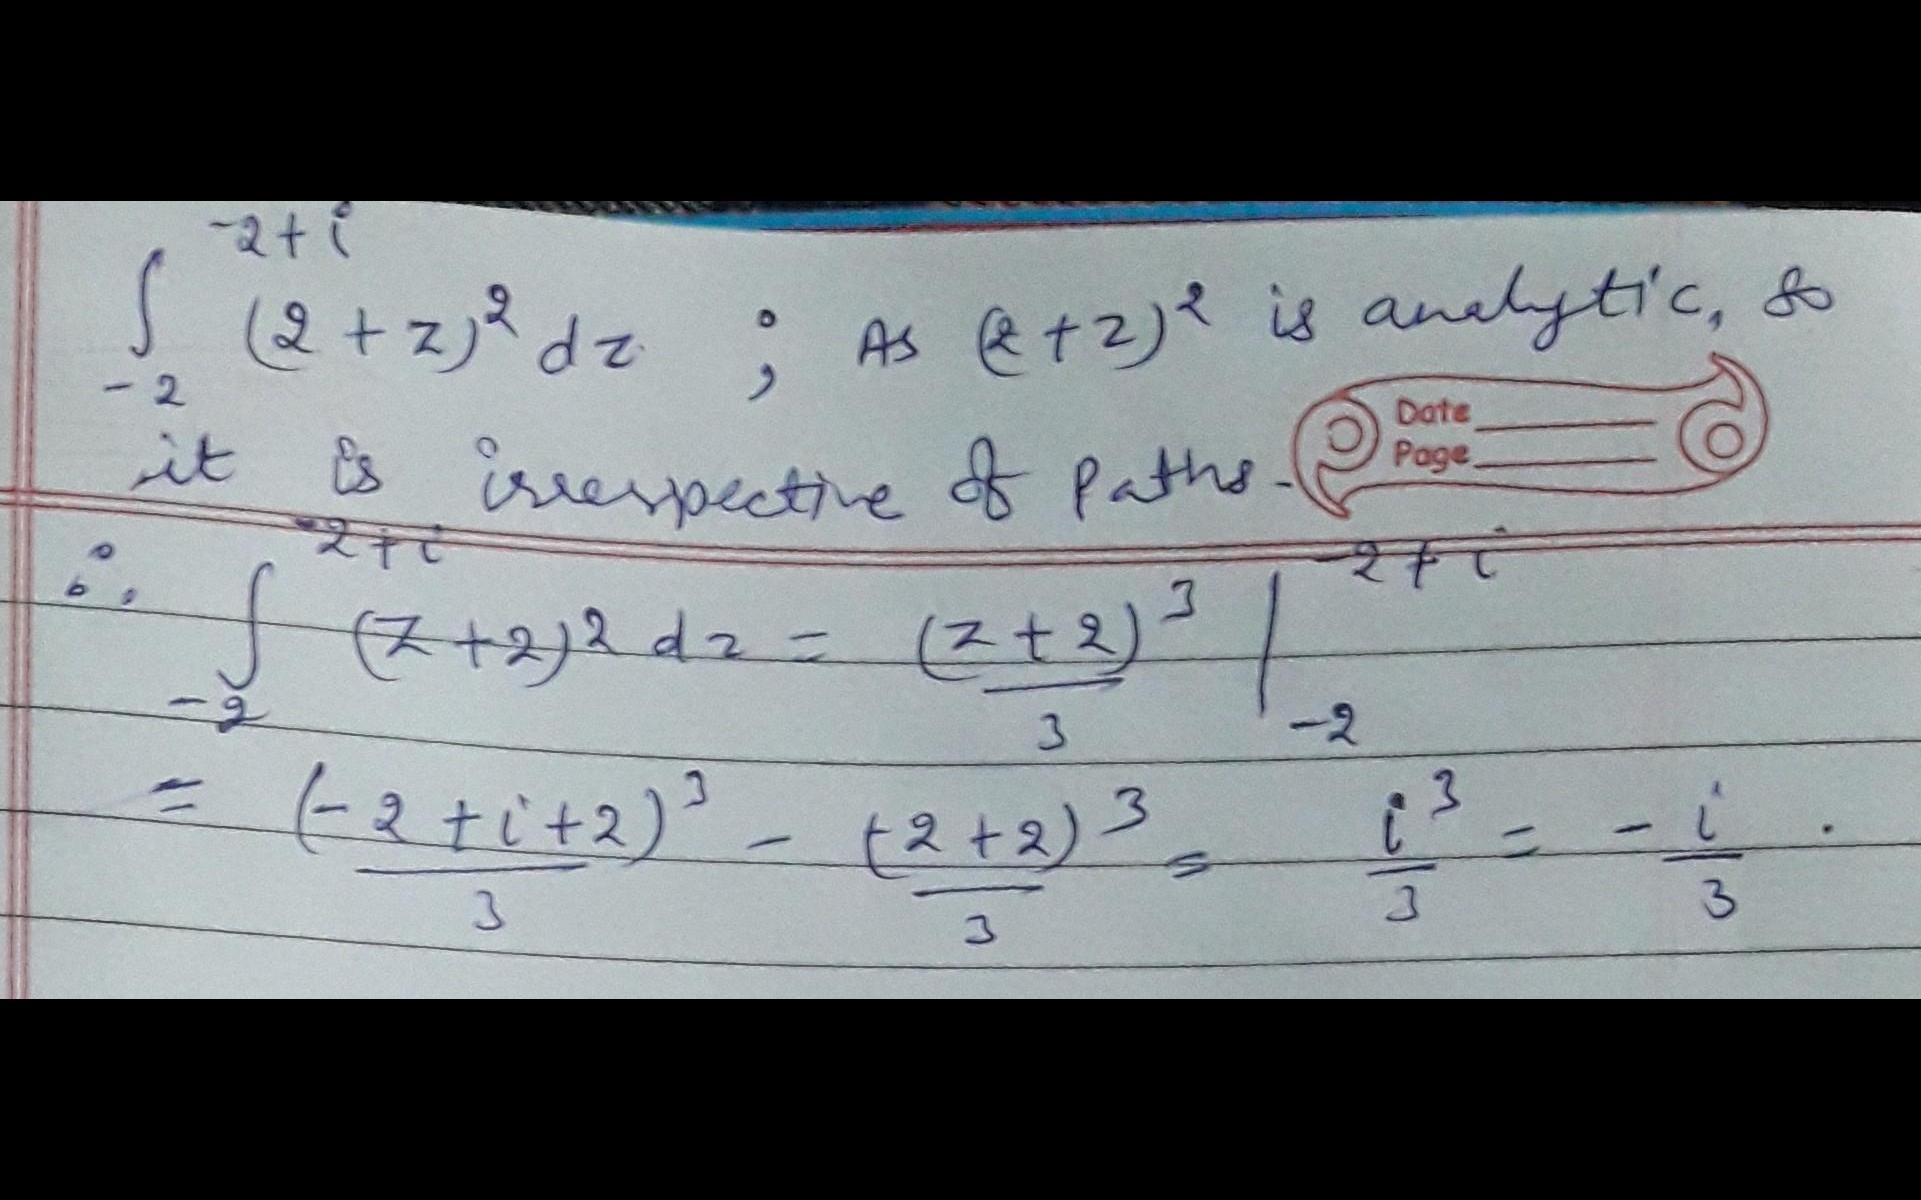 ∫_{-2}^{-2+i} (2+z)² dz ; As (2+z)² is analytic, so
Date
Page
it is irrespective of Paths.
∴ ∫_{-2}^{-2+i} (z+2)² dz = (z+2)³/3 |_{-2}^{-2+i}
= (-2+i+2)³/3 - (-2+2)³/3 = i³/3 = -i/3 .